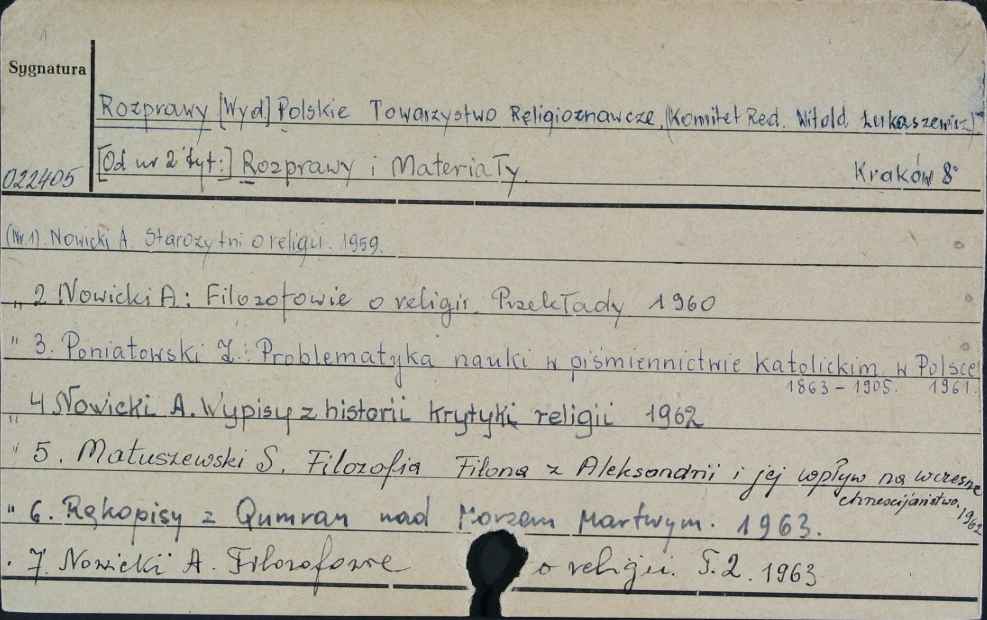 Sygnatura
Rozprawy [Wyd.] Polskie Towarzystwo Religioznawcze. (Komitet Red. Witold Łukaszewicz)
[Od nr 2 tyt:] Rozprawy i Materiały.
022405
Kraków 8°
(Nr. 1). Nowicki A. Starożytni o religii. 1959.
" 2 Nowicki A.: Filozofowie o religii. Przekłady 1960
" 3. Poniatowski Z.: Problematyka nauki w piśmiennictwie katolickim w Polsce
1863 - 1905. 1961.
" 4 Nowicki A. Wypisy z historii krytyki religii 1962
" 5. Matuszewski S. Filozofia Filona z Aleksandrii i jej wpływ na wczesne
chrześcijaństwo, 1962
" 6. Rękopisy z Qumran nad Morzem Martwym. 1963.
. 7. Nowicki A. Filozofowie o religii. T. 2. 1963